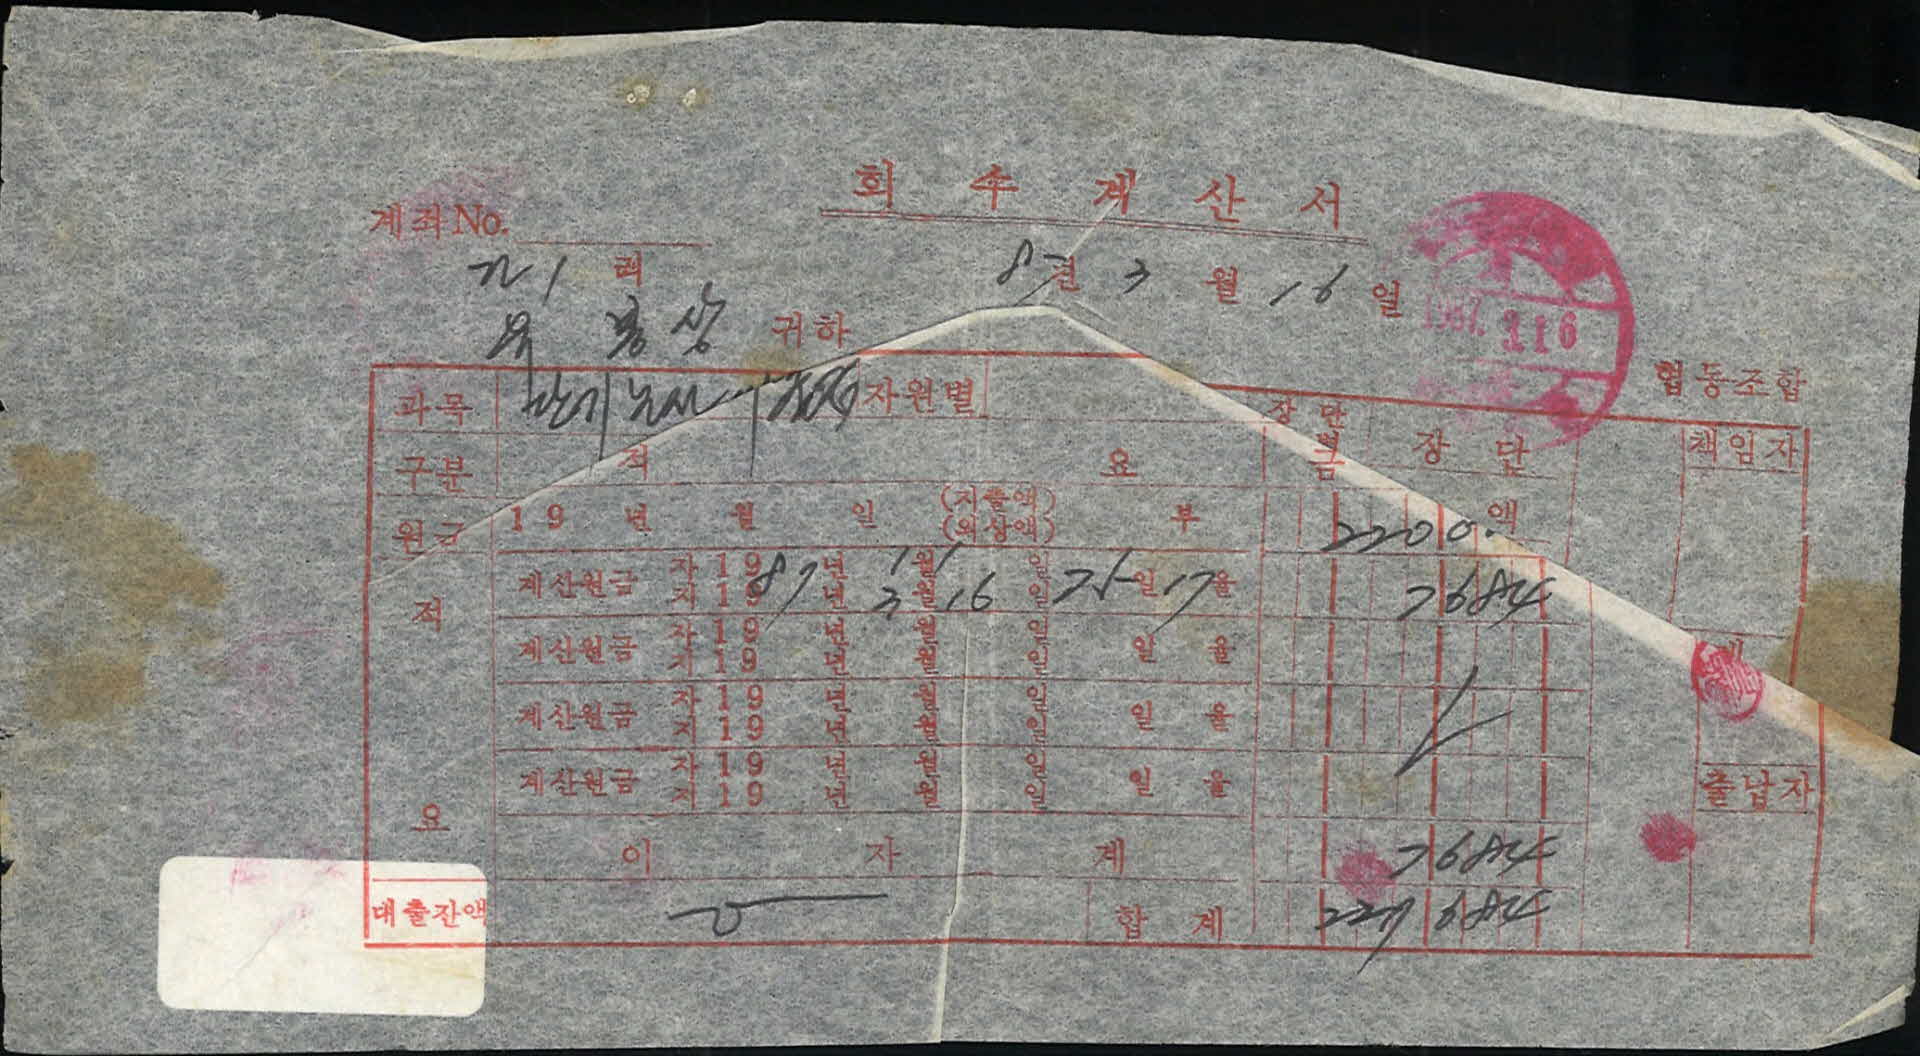 회수계산서
계좌 No.
리
87년 3월 16일
1987. 3. 16
귀하
협동조합
과목 자원별
장단
구분 적 요 부금 장단 책임자
원금 19 년 월 일 (지출액) 부 액 2200
(외상액)
계산원금 자 19 년 1월 1일
지 1987년 3월 16일 75일 17율 7684
적
계산원금 자 19 년 월 일
지 19 년 월 일 일 율
계산원금 자 19 년 월 일
지 19 년 월 일 일 율
계산원금 자 19 년 월 일
지 19 년 월 일 일 율
출납자
요
이 자 계 7684
대출잔액 합계